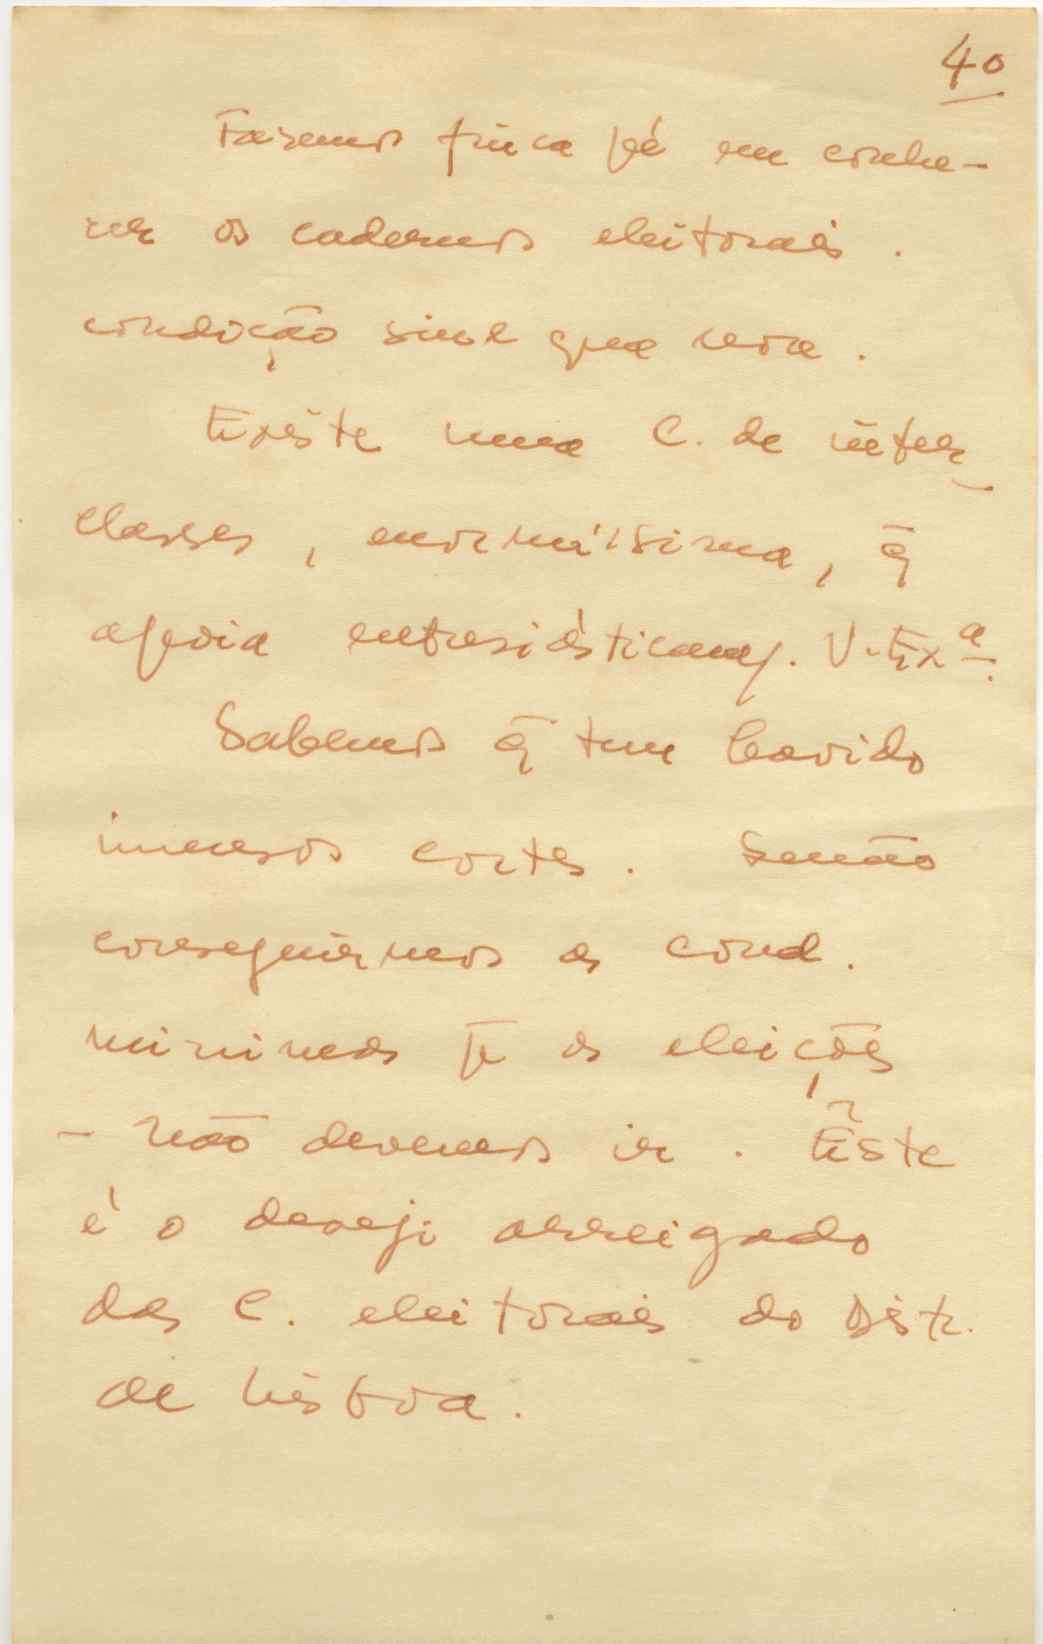 40
Fazemos finca pé em conhe-
cer os cadernos eleitorais.
condição sine qua non.
Existe uma C. de inter
classes, enormíssima, q̄
apoia entusiásticam/. V. Exª.
Sabemos q̄ tem havido
imensos cortes. Senão
conseguirmos as cond.
minimas p̄ as eleições
- não devemos ir. Êste
é o desejo arreigado
das C. eleitorais do Distr.
de Lisboa.